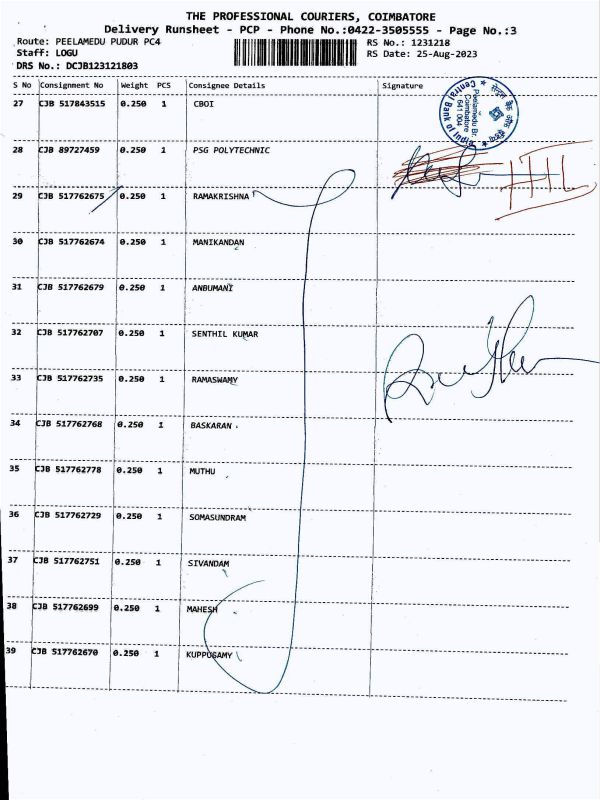 THE PROFESSIONAL COURIERS, COIMBATORE
Delivery Runsheet - PCP - Phone No.:0422-3505555 - Page No.:3
Route: PEELAMEDU PUDUR PC4 RS No.: 1231218
Staff: LOGU RS Date: 25-Aug-2023
DRS No.: DCJB123121803
S No Consignment No Weight PCS Consignee Details Signature
27 CJB 517843515 0.250 1 CBOI
Central Bank of India
Peelamedu Br.
Coimbatore
641 004
28 CJB 89727459 0.250 1 PSG POLYTECHNIC
29 CJB 517762675 0.250 1 RAMAKRISHNA
30 CJB 517762674 0.250 1 MANIKANDAN
31 CJB 517762679 0.250 1 ANBUMANI
32 CJB 517762707 0.250 1 SENTHIL KUMAR
33 CJB 517762735 0.250 1 RAMASWAMY
34 CJB 517762768 0.250 1 BASKARAN
35 CJB 517762778 0.250 1 MUTHU
36 CJB 517762729 0.250 1 SOMASUNDRAM
37 CJB 517762751 0.250 1 SIVANDAM
38 CJB 517762699 0.250 1 MAHESH
39 CJB 517762670 0.250 1 KUPPUSAMY